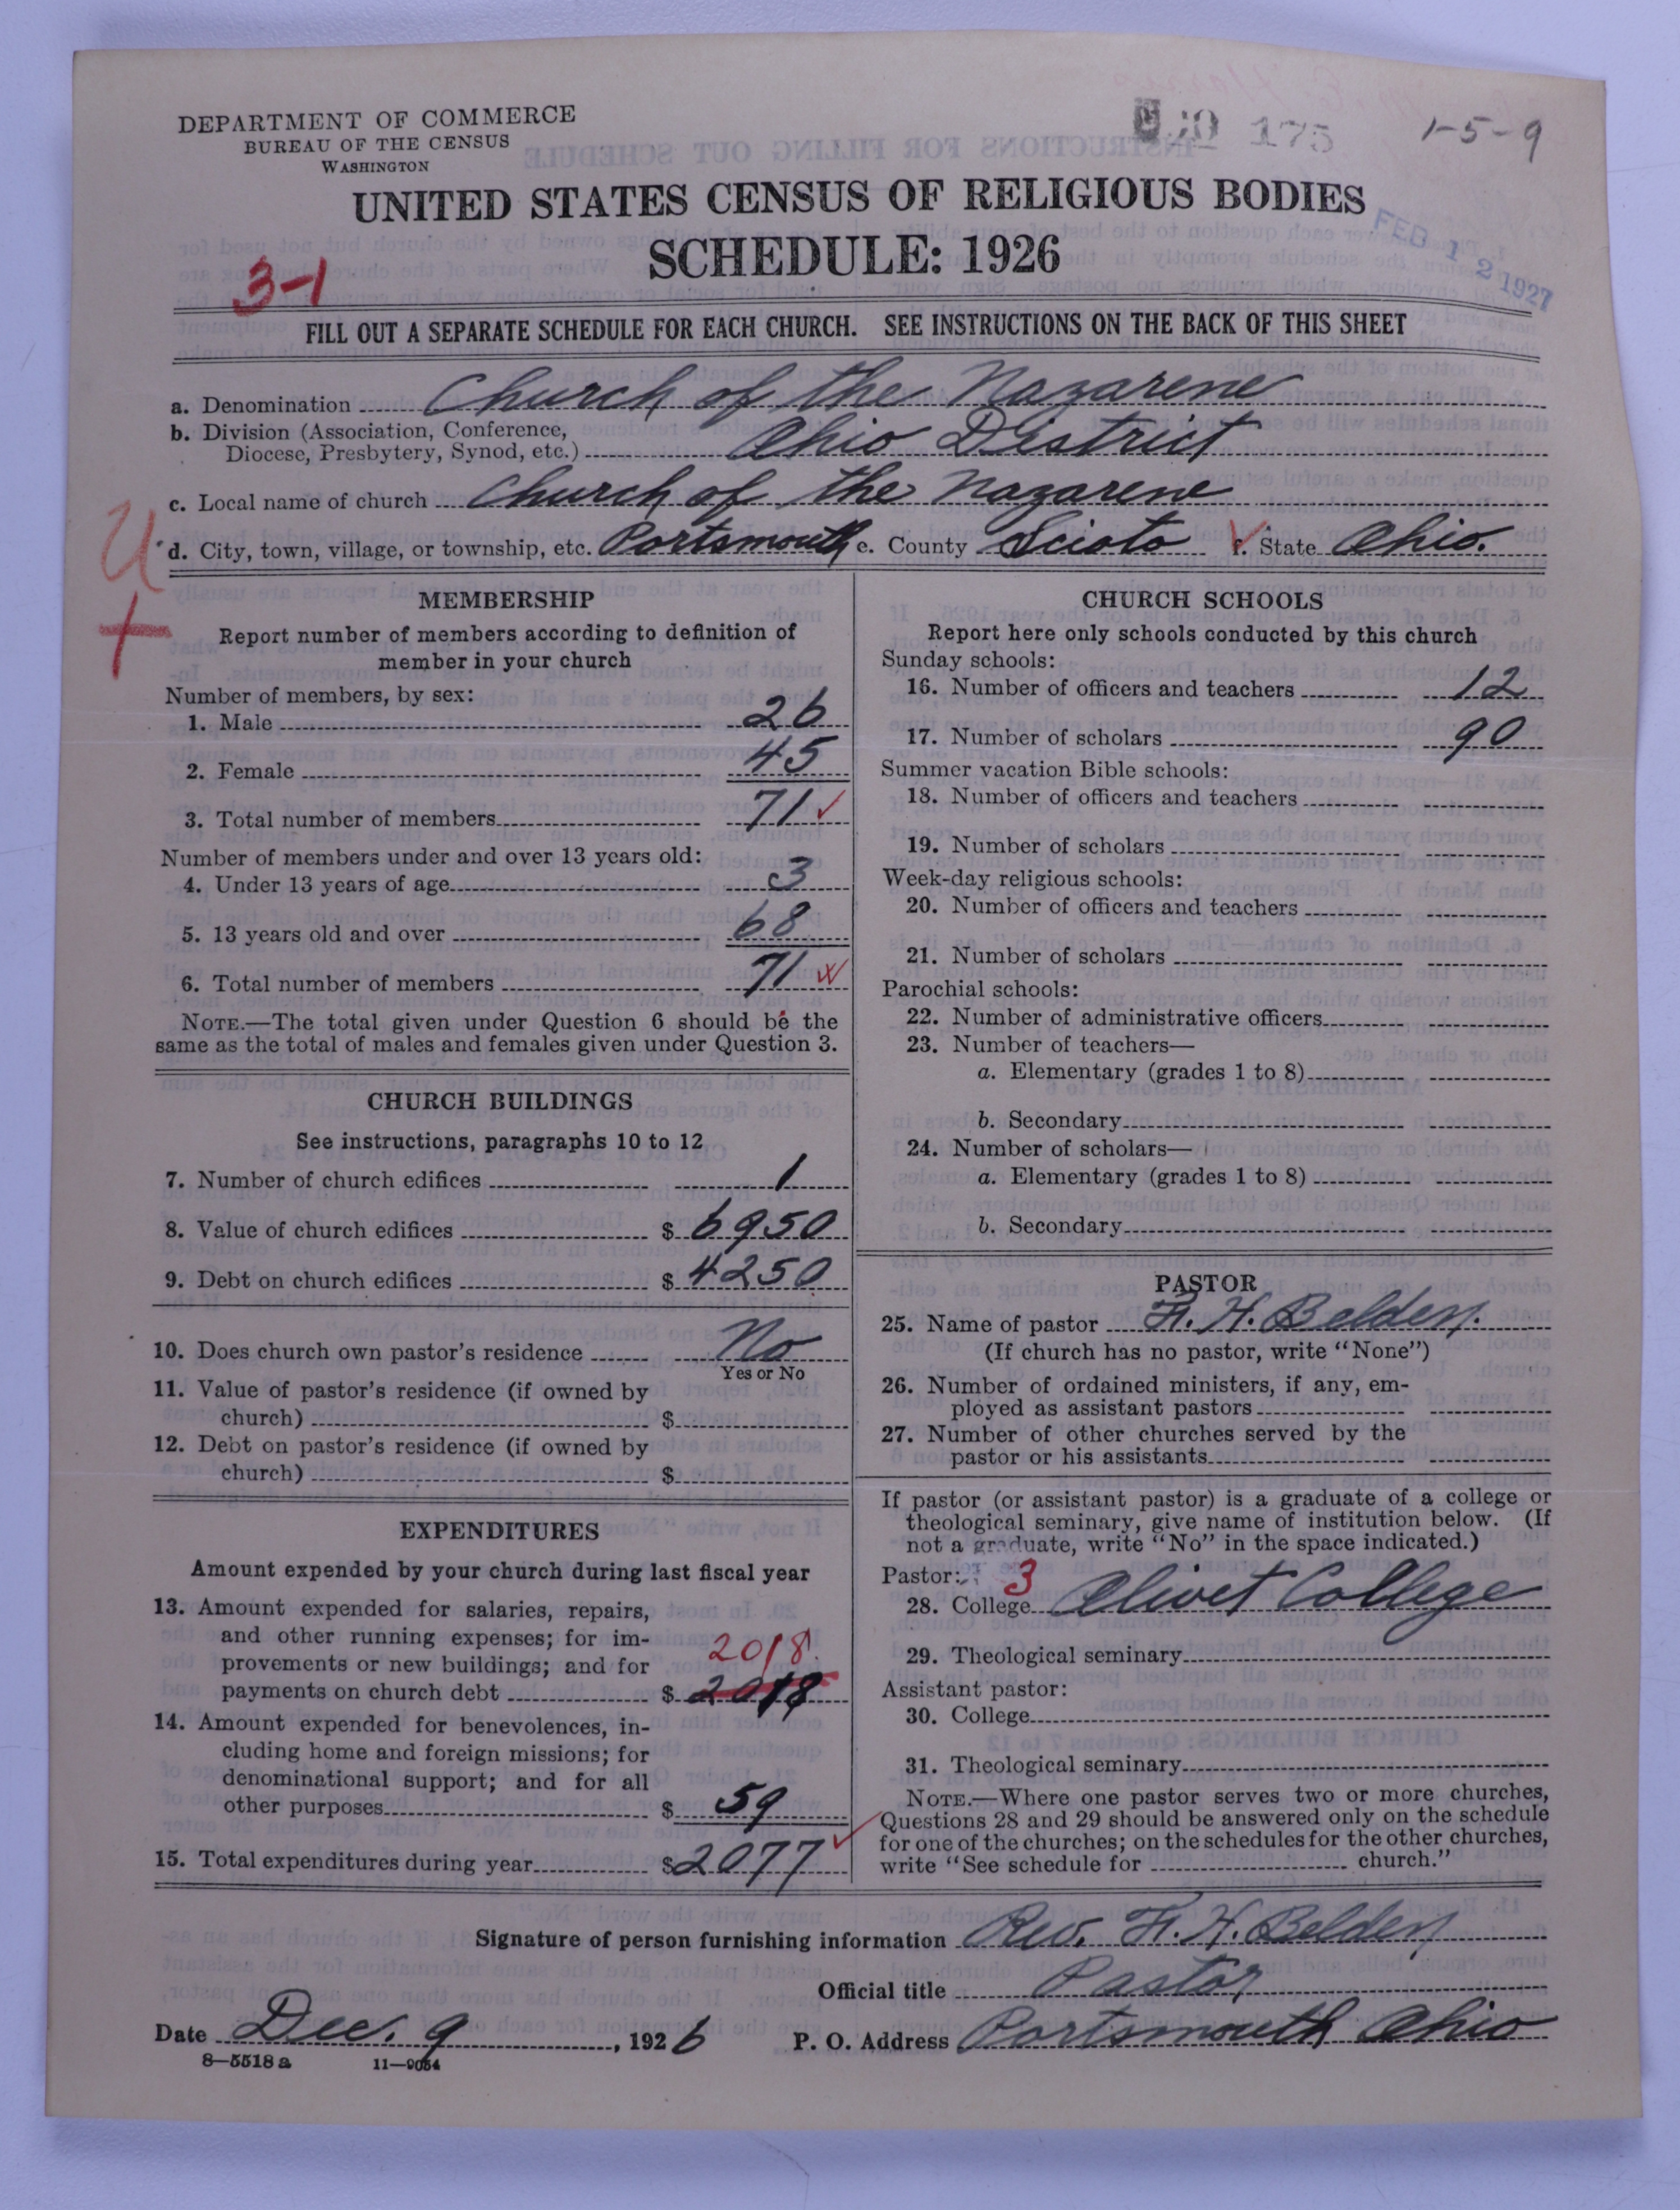 DEPARTMENT OF COMMERCE
BUREAU OF THE CENSUS
WASHINGTON
175
1-5-9
UNITED STATES CENSUS OF RELIGIOUS BODIES
SCHEDULE: 1926
FEB 12 1927
3-1
FILL OUT A SEPARATE SCHEDULE FOR EACH CHURCH. SEE INSTRUCTIONS ON THE BACK OF THIS SHEET
a. Denomination Church of the Nazarene
b. Division (Association, Conference,
Diocese, Presbytery, Synod, etc.) Ohio District
c. Local name of church Church of the Nazarene
U
d. City, town, village, or township, etc. Portsmouth e. County Scioto f. State Ohio.
MEMBERSHIP
Report number of members according to definition of
member in your church
Number of members, by sex:
1. Male 26
2. Female 45
3. Total number of members 71 ✓
Number of members under and over 13 years old:
4. Under 13 years of age 3
5. 13 years old and over 68
6. Total number of members 71
NOTE.—The total given under Question 6 should be the
same as the total of males and females given under Question 3.
CHURCH BUILDINGS
See instructions, paragraphs 10 to 12
7. Number of church edifices 1
8. Value of church edifices $ 6950
9. Debt on church edifices $ 4250
10. Does church own pastor's residence No
Yes or No
11. Value of pastor's residence (if owned by
church) $
12. Debt on pastor's residence (if owned by
church) $
EXPENDITURES
Amount expended by your church during last fiscal year
13. Amount expended for salaries, repairs,
and other running expenses; for im-
provements or new buildings; and for 2018.
payments on church debt $ 2018
14. Amount expended for benevolences, in-
cluding home and foreign missions; for
denominational support; and for all
other purposes $ 59
15. Total expenditures during year $ 2077 ✓
CHURCH SCHOOLS
Report here only schools conducted by this church
Sunday schools:
16. Number of officers and teachers 12
17. Number of scholars 90
Summer vacation Bible schools:
18. Number of officers and teachers
19. Number of scholars
Week-day religious schools:
20. Number of officers and teachers
21. Number of scholars
Parochial schools:
22. Number of administrative officers
23. Number of teachers—
a. Elementary (grades 1 to 8)
b. Secondary
24. Number of scholars—
a. Elementary (grades 1 to 8)
b. Secondary
PASTOR
25. Name of pastor F. H. Belden.
(If church has no pastor, write "None")
26. Number of ordained ministers, if any, em-
ployed as assistant pastors
27. Number of other churches served by the
pastor or his assistants
If pastor (or assistant pastor) is a graduate of a college or
theological seminary, give name of institution below. (If
not a graduate, write "No" in the space indicated.)
Pastor: 3
28. College Olivet College
29. Theological seminary
Assistant pastor:
30. College
31. Theological seminary
NOTE.—Where one pastor serves two or more churches,
Questions 28 and 29 should be answered only on the schedule
for one of the churches; on the schedules for the other churches,
write "See schedule for church."
Signature of person furnishing information Rev. F. H. Belden
Official title Pastor
Date Dec. 9, 1926 P. O. Address Portsmouth Ohio
8—5518 a 11—9034